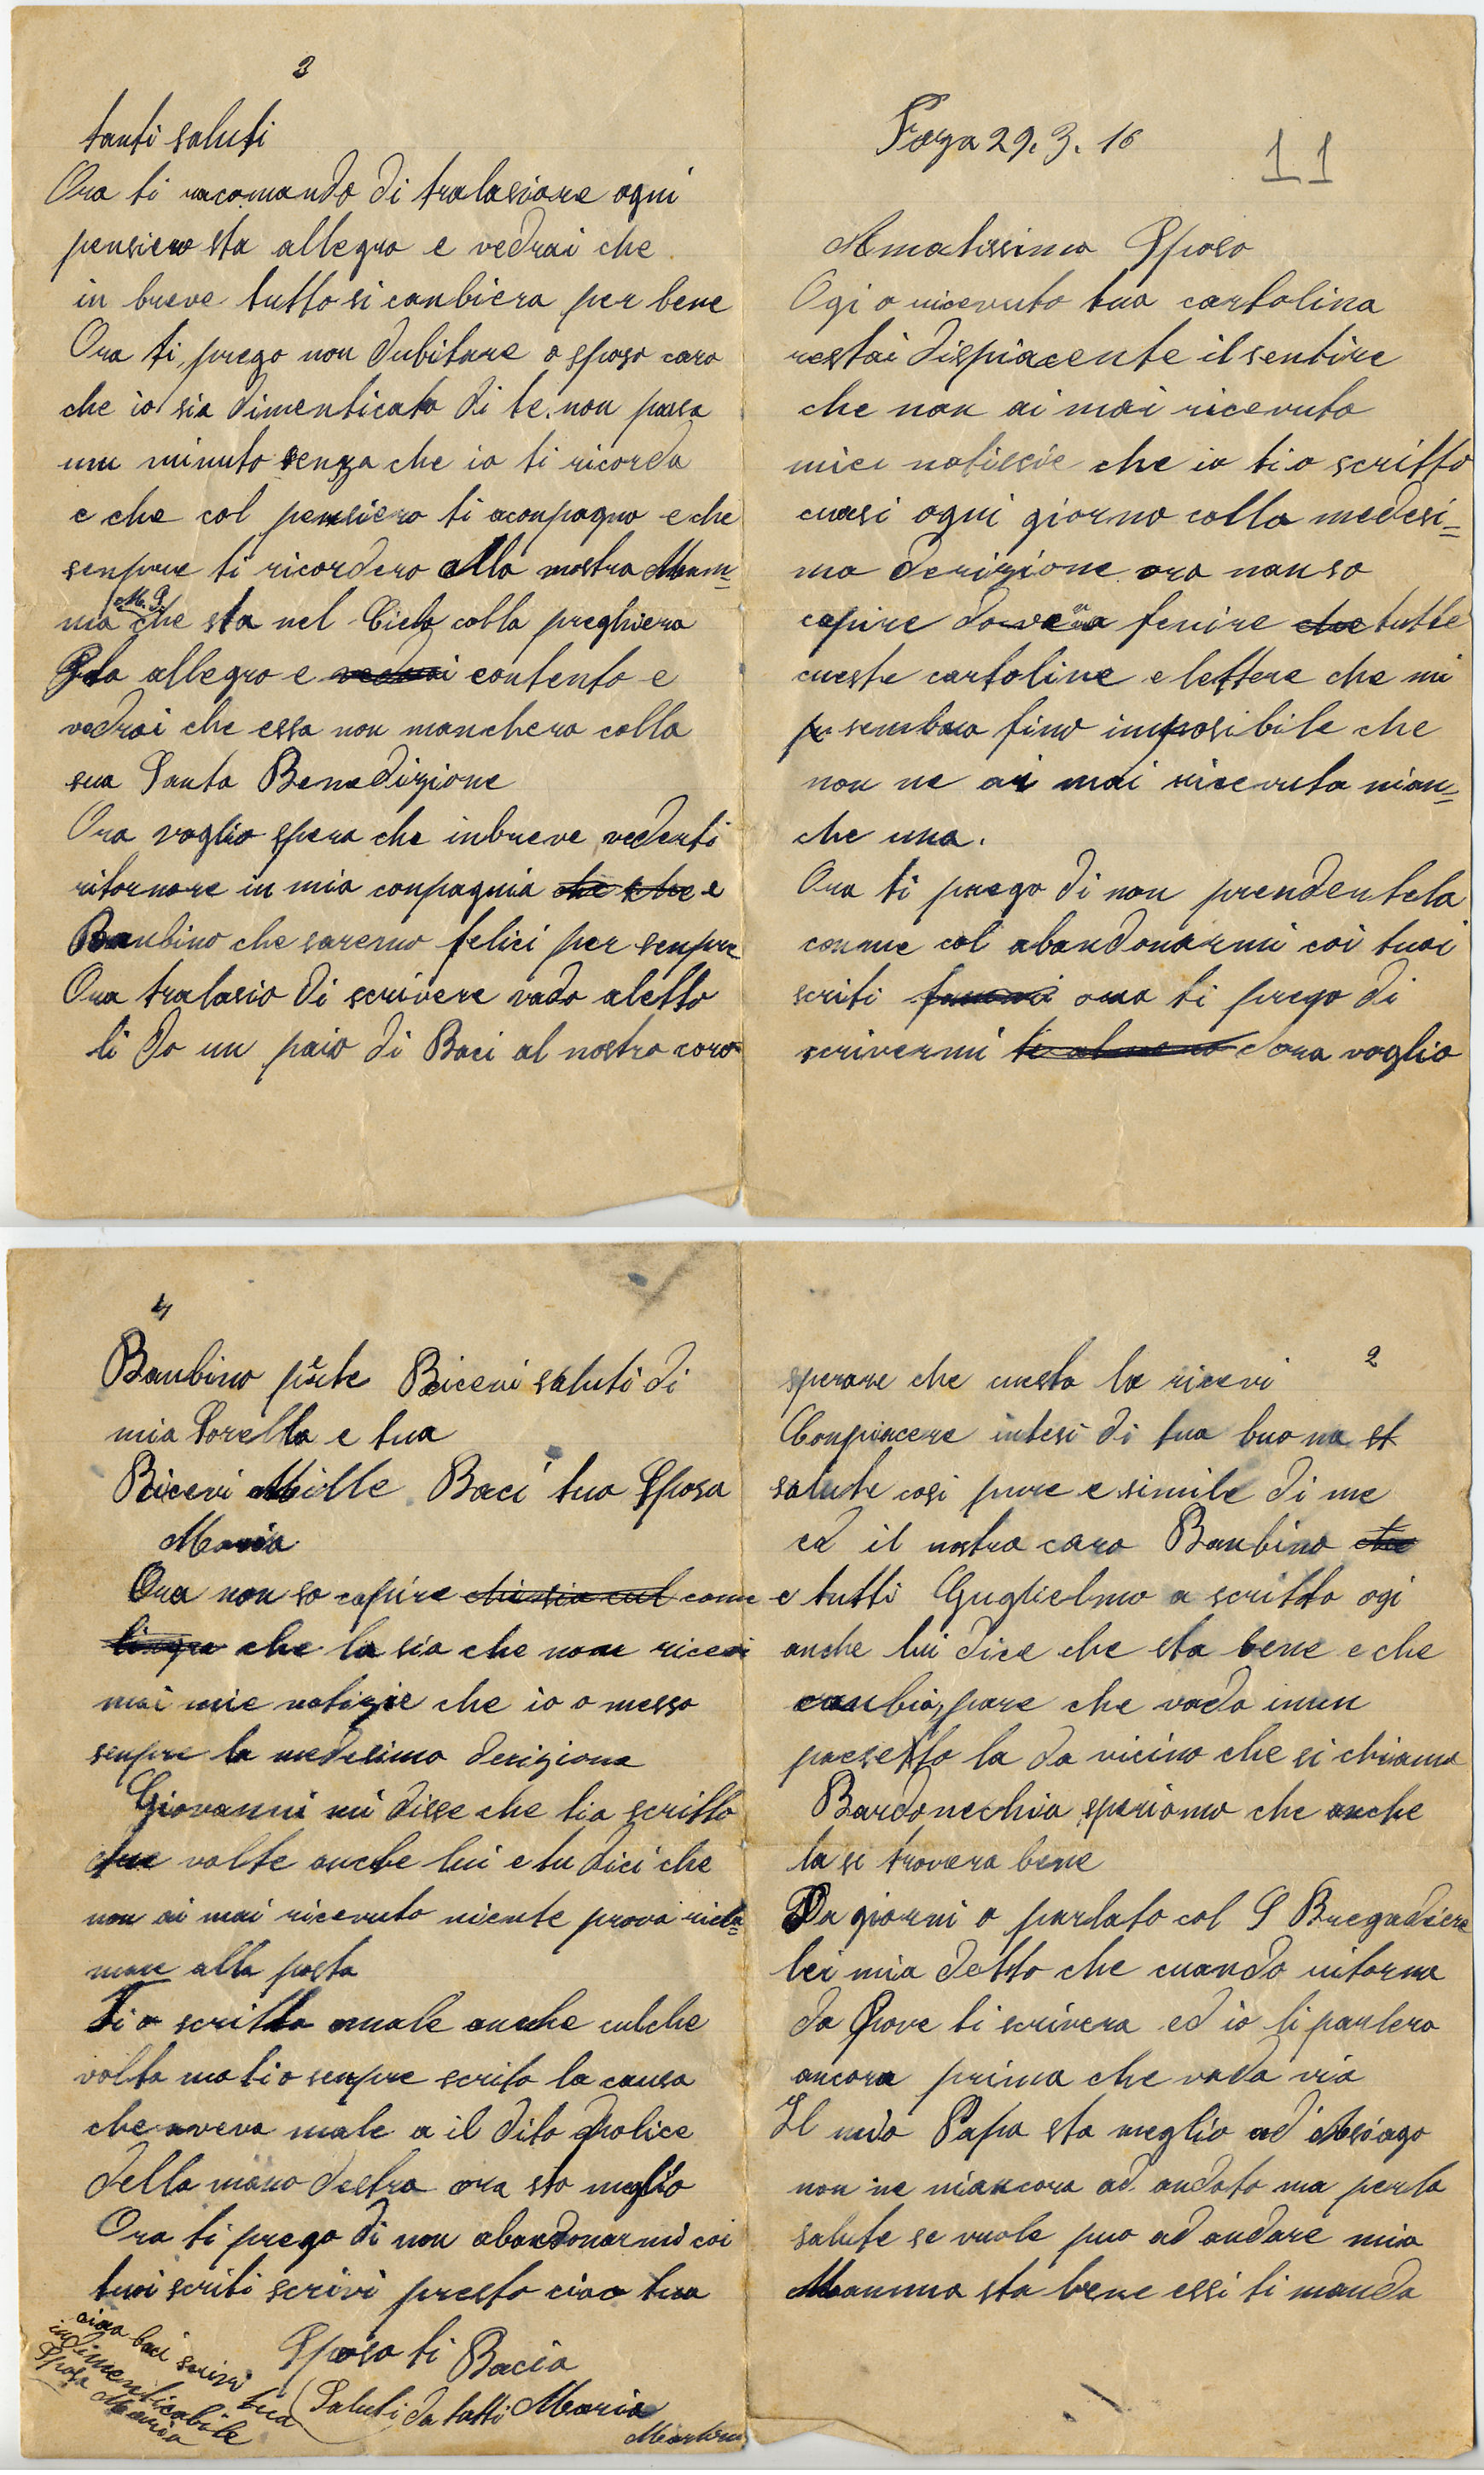 Forza 29. 3. 16
11
Amatissimo Sposo
Ogi o ricevuto tua cartolina
restai dispiacente il sentire
che non ai mai ricevuto
miei notiesie che io ti o scritto
cuasi ogni giorno colla medesi=
ma derizione ora non so
capire dove va fenire che tutte
cueste cartoline e lettere che mi
sembra fino imposibile che
non ne ai mai ricevuta nian=
che una.
Ora ti prego di non prendertela
conme col abandonarmi coi tuoi
scriti ora ti prego di
scrivermi ti almeno ora voglio
2
sperare che cuesta la ricevi
Conpiacere intesi di tua buona st
salute cosi pure e simile di me
ed il nostro caro Banbino che
e tutti Guglielmo a scritto ogi
anche lui dice che sta bene e che
canbia, pare che vada inun
paesetto la da vicino che si chiama
Bardonechia speriamo che anche
la si trovera bene
Da giorni o parlato col S Bregadiere
lei mia detto che cuando ritorna
da Rove ti scrivera ed io li parlero
ancora prima che vada via
Il mio Papa sta meglio ad Asiago
non ne niancora ad andato ma perla
salute se vuole puo ad andare mia
Mamma sta bene essi ti manda
3
tanti saluti
Ora ti racomando di tralasiare ogni
pensiero sta allegro e vedrai che
in breve tutto si canbiera per bene
Ora ti prego non dubitare o sposo caro
che io sia dimenticata di te. non passa
un minuto senza che io ti ricorda
e che col pensiero ti aconpagno e che
senpre ti ricordero alla nostra Mam=
M. G.
ma che sta nel Cielo colla preghiera
Sta allegro e vedrai contento e
vedrai che essa non manchera colla
sua Santa Benedizione
Ora voglio spera che inbreve vederti
ritornare in mia conpagnia che che e
Banbino che saremo felici per senpre
Ora tralasio di scrivere vado aletto
li do un paio di Baci al nostro caro
4
Banbino per te Ricevi saluti di
mia Sorella e tua
Ricevi Mille Baci tua Sposa
Maria
Ora non so capire che sia cul come
che la sia che none ricevi
mai mie notizie che io o messo
senpre la medesima derizione
Giovanni mi disse che tia scritto
due volte anche lui e tu dici che
non ai mai ricevuto niente prova ricla=
mare alla posta
Ti o scritto male anche culche
volta ma tio senpre scrito la causa
che aveva male a il dito police
della mano destra ora sto meglio
Ora ti prego di non abandonarmi coi
tuoi scriti scrivi presto ciao tua
Sposa ti Bacia
Saluti da tutti Maria
Martini
ciao baci scrivi tua
indimenticabile
Sposa Maria